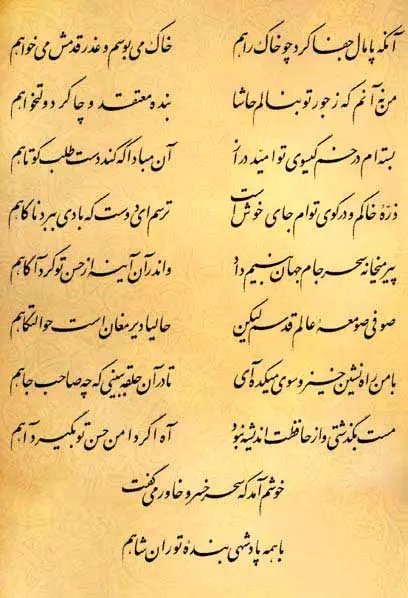 آنکه پامال جفا کرد چو خاک راهم خاک می بوسم و عذر قدمش می خواهم
من نه آنم که ز جور تو بنالم حاشا بندهٔ معتقد و چاکر دولتخواهم
بسته ام در خم گیسوی تو امید دراز آن مبادا که کند دست طلب کوتاهم
ذرّهٔ خاکم و در کوی توام جای خوش است ترسم ای دوست که بادی ببرد ناگاهم
پیر میخانه سحر جام جهان بینم داد واندر آن آینه از حسن تو کرد آگاهم
صوفی صومعهٔ عالم قدسم لیکن حالیا دیر مغان است حوالتگاهم
با من راه نشین خیز و سوی میکده آی تا در آن حلقه ببینی که چه صاحب جاهم
مست بگذشتی و از حافظت اندیشه نبود آه اگر دامن حسن تو بگیرد آهم
خوشم آمد که سحر خسرو خاور می گفت
با همه پادشهی بندهٔ توران شاهم